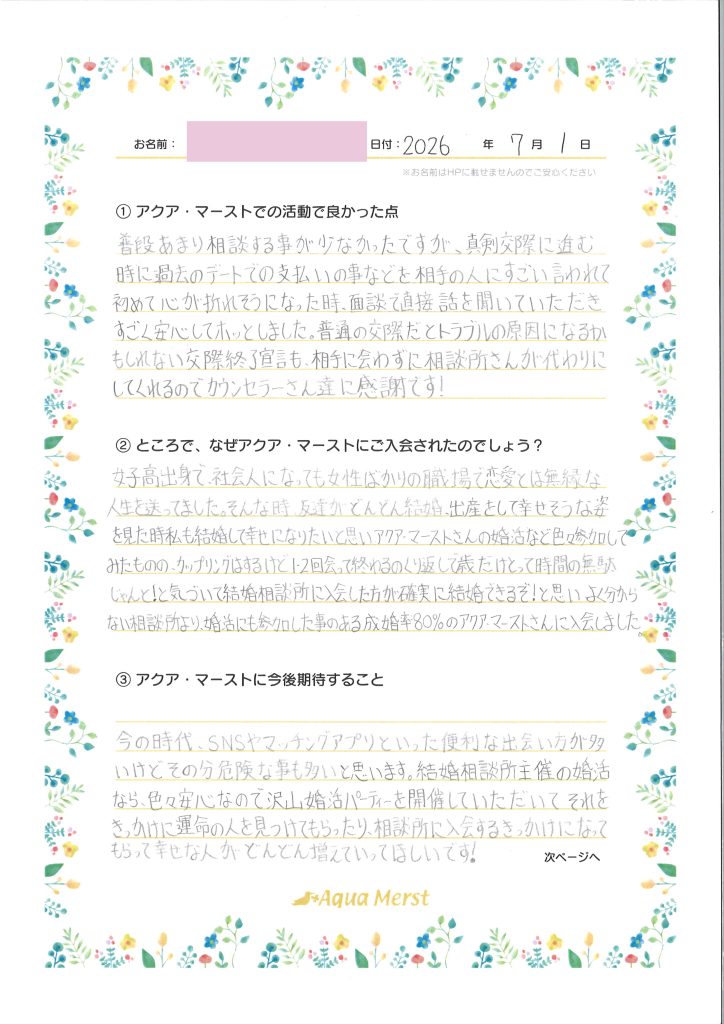 お名前：
日付：2026 年 7 月 1 日
※お名前はHPに載せませんのでご安心ください
① アクア・マーストでの活動で良かった点
普段あまり相談する事が少なかったですが、真剣交際に進む
時に過去のデートでの支払いの事などを相手の人にすごい言われて
初めて心が折れそうになった時、面談で直接話を聞いていただき
すごく安心してホッとしました。普通の交際だとトラブルの原因になるか
もしれない交際終了宣言も、相手に会わずに相談所さんが代わりに
してくれるのでカウンセラーさん達に感謝です!
② ところで、なぜアクア・マーストにご入会されたのでしょう？
女子高出身で、社会人になっても女性ばかりの職場で恋愛とは無縁な
人生を送ってました。そんな時、友達がどんどん結婚、出産をして幸せそうな姿
を見た時私も結婚して幸せになりたいと思いアクア・マーストさんの婚活など色々参加して
みたものの、カップリングはするけど1・2回会って終わるのくり返しで歳だけとって時間の無駄
じゃんと!と気づいて結婚相談所に入会した方が確実に結婚できるぞ!と思い よく分から
ない相談所より、婚活にも参加した事のある成婚率80%のアクア・マーストさんに入会しました。
③ アクア・マーストに今後期待すること
今の時代、SNSやマッチングアプリといった便利な出会い方が多
いけどその分危険な事も多いと思います。結婚相談所主催の婚活
なら、色々安心なので沢山婚活パーティーを開催していただいて それを
きっかけに運命の人を見つけてもらったり、相談所に入会するきっかけになって
もらって幸せな人がどんどん増えていってほしいです!
次ページへ
Aqua Merst